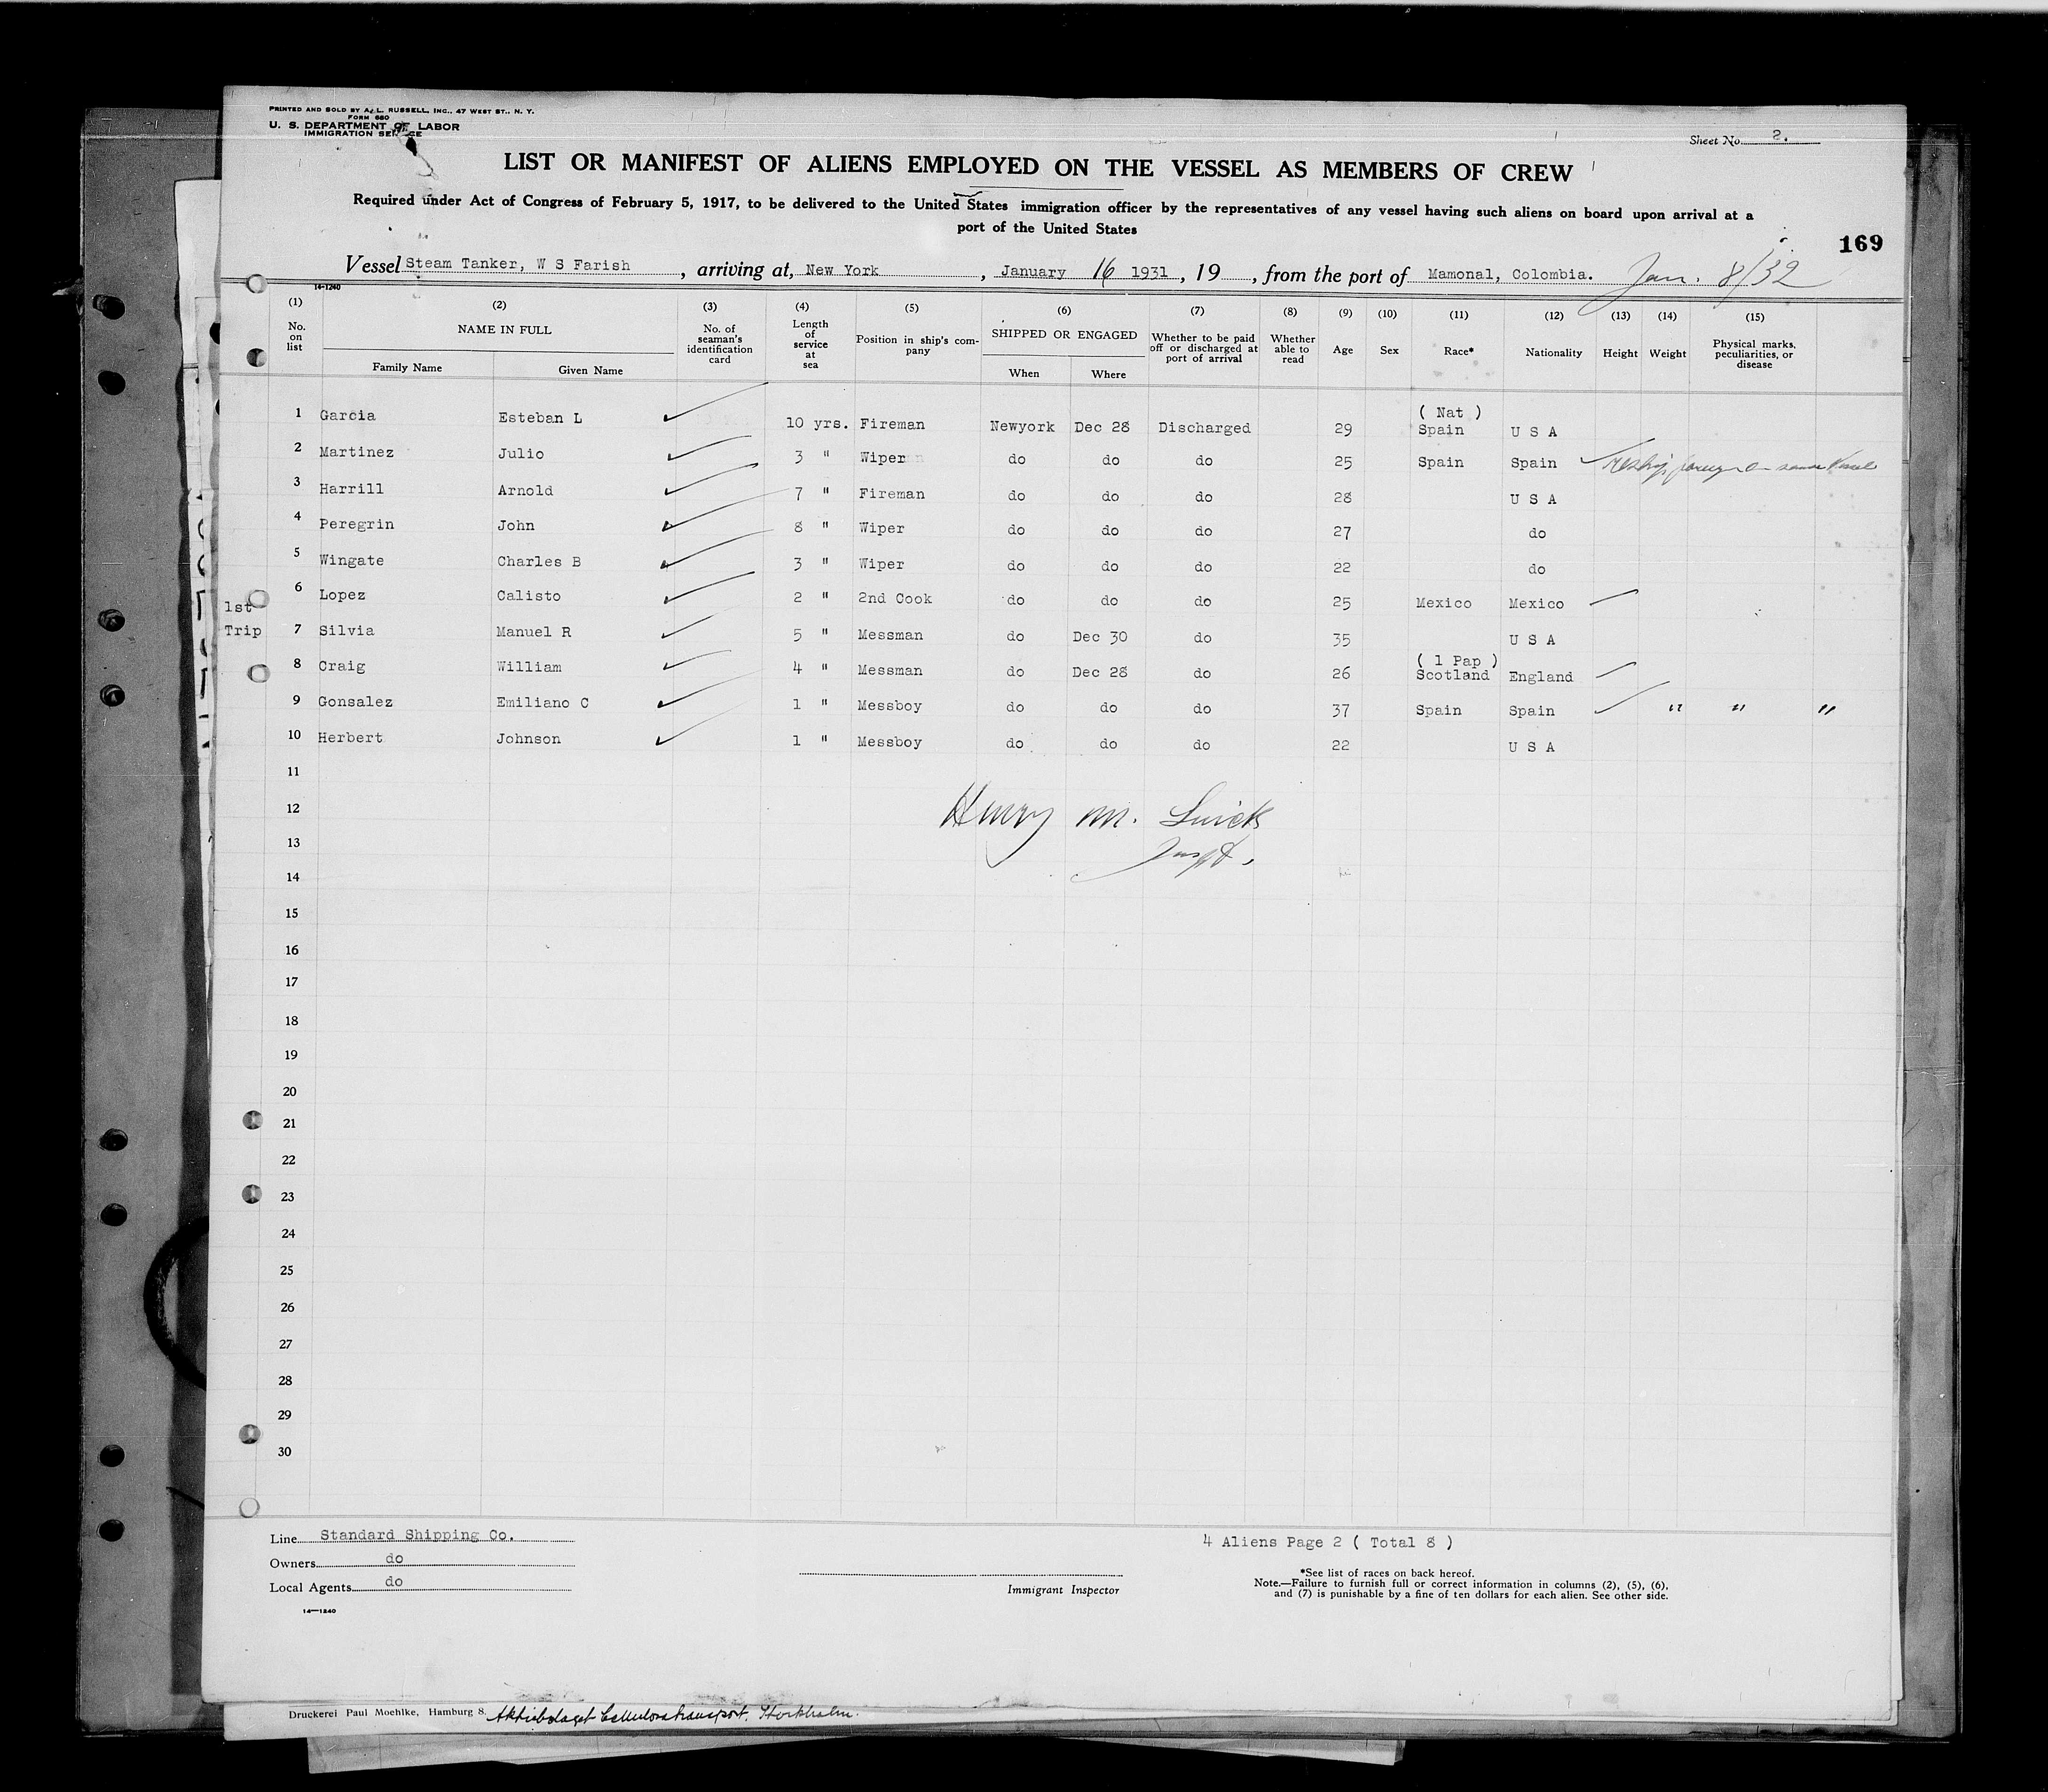 PRINTED AND SOLD BY A. L. RUSSELL, INC., 47 WEST ST., N. Y.
FORM 680
U. S. DEPARTMENT OF LABOR
IMMIGRATION SERVICE
Sheet No. 2.
LIST OR MANIFEST OF ALIENS EMPLOYED ON THE VESSEL AS MEMBERS OF CREW
Required under Act of Congress of February 5, 1917, to be delivered to the United States immigration officer by the representatives of any vessel having such aliens on board upon arrival at a
port of the United States
169
Vessel Steam Tanker, W S Farish, arriving at, New York, January 16 1931, 19, from the port of Mamonal, Colombia. Jan. 8/32
14-1240
(1) (2) (3) (4) (5) (6) (7) (8) (9) (10) (11) (12) (13) (14) (15)
No. on list NAME IN FULL Family Name Given Name No. of seaman's identification card Length of service at sea Position in ship's company SHIPPED OR ENGAGED When Where Whether to be paid off or discharged at port of arrival Whether able to read Age Sex Race* Nationality Height Weight Physical marks, peculiarities, or disease
1 Garcia Esteban L 10 yrs. Fireman Newyork Dec 28 Discharged 29 ( Nat ) Spain U S A
2 Martinez Julio 3 " Wiper do do do 25 Spain Spain Reship foreign on same Vessel
3 Harrill Arnold 7 " Fireman do do do 28 U S A
4 Peregrin John 8 " Wiper do do do 27 do
5 Wingate Charles B 3 " Wiper do do do 22 do
1st
6 Lopez Calisto 2 " 2nd Cook do do do 25 Mexico Mexico
Trip
7 Silvia Manuel R 5 " Messman do Dec 30 do 35 U S A
8 Craig William 4 " Messman do Dec 28 do 26 ( 1 Pap ) Scotland England
9 Gonsalez Emiliano C 1 " Messboy do do do 37 Spain Spain " " "
10 Herbert Johnson 1 " Messboy do do do 22 U S A
11
12 Henry M.
13 Inspt.
14
15
16
17
18
19
20
21
22
23
24
25
26
27
28
29
30
Line Standard Shipping Co.
Owners do
Local Agents do
14—1240
Immigrant Inspector
4 Aliens Page 2 ( Total 8 )
*See list of races on back hereof.
Note.—Failure to furnish full or correct information in columns (2), (5), (6),
and (7) is punishable by a fine of ten dollars for each alien. See other side.
Druckerei Paul Moehlke, Hamburg 8. Aktiebolaget Cellulosatransport, Stockholm.